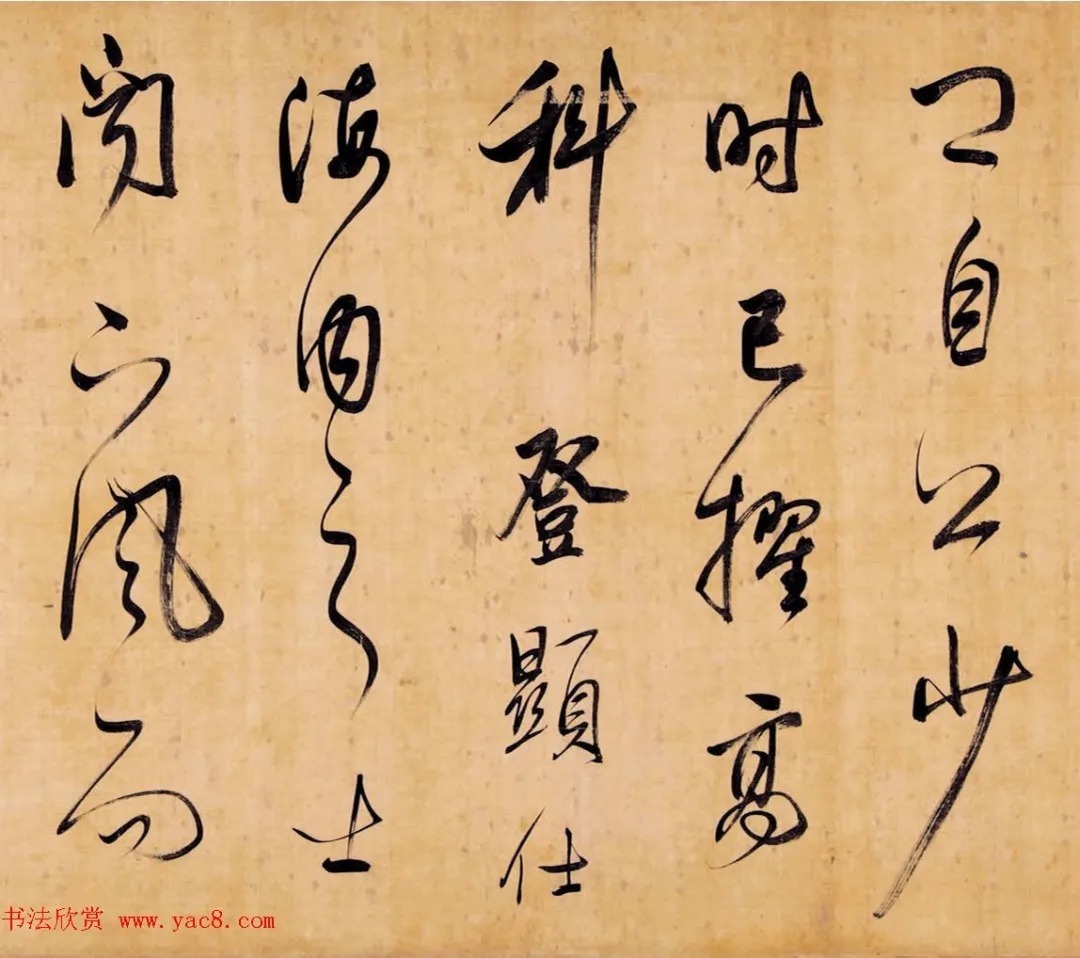 也自公少
时已擢高
科登顯仕
海内之士
闻下风而
书法欣赏 www.yac8.com